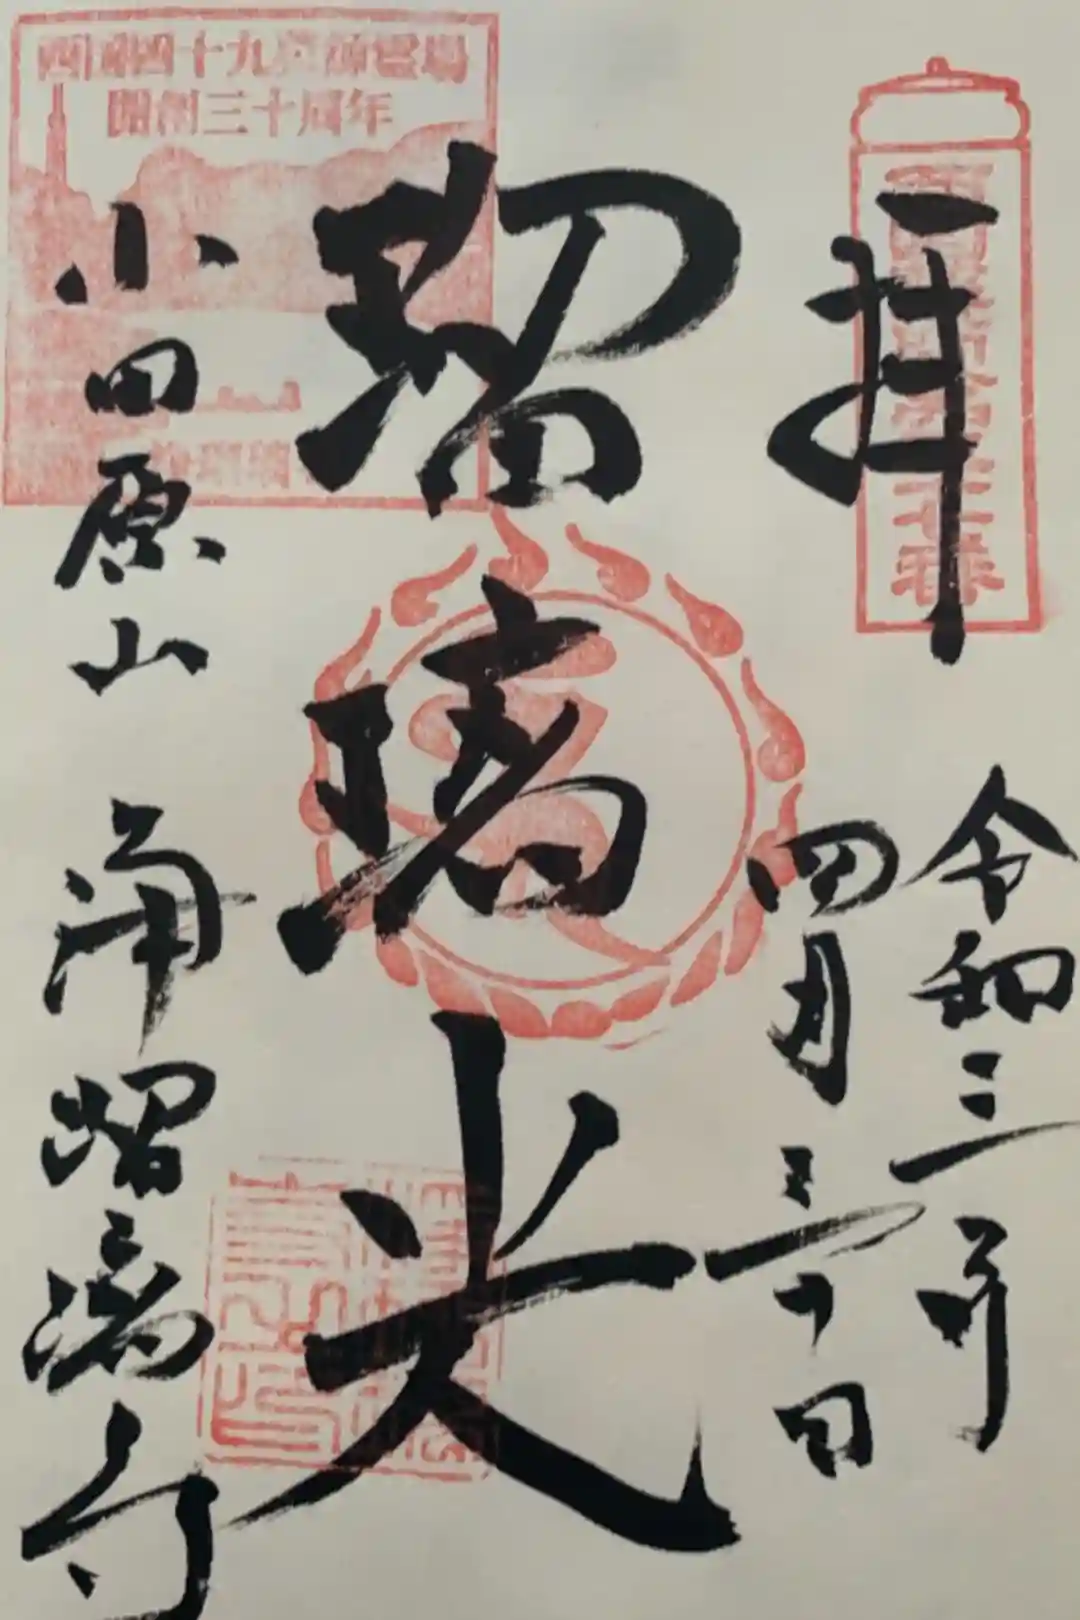 拝
令和三年
四月三十日
瑠璃光
小田原山 浄瑠璃寺
西國四十九薬師霊場
開創三十周年